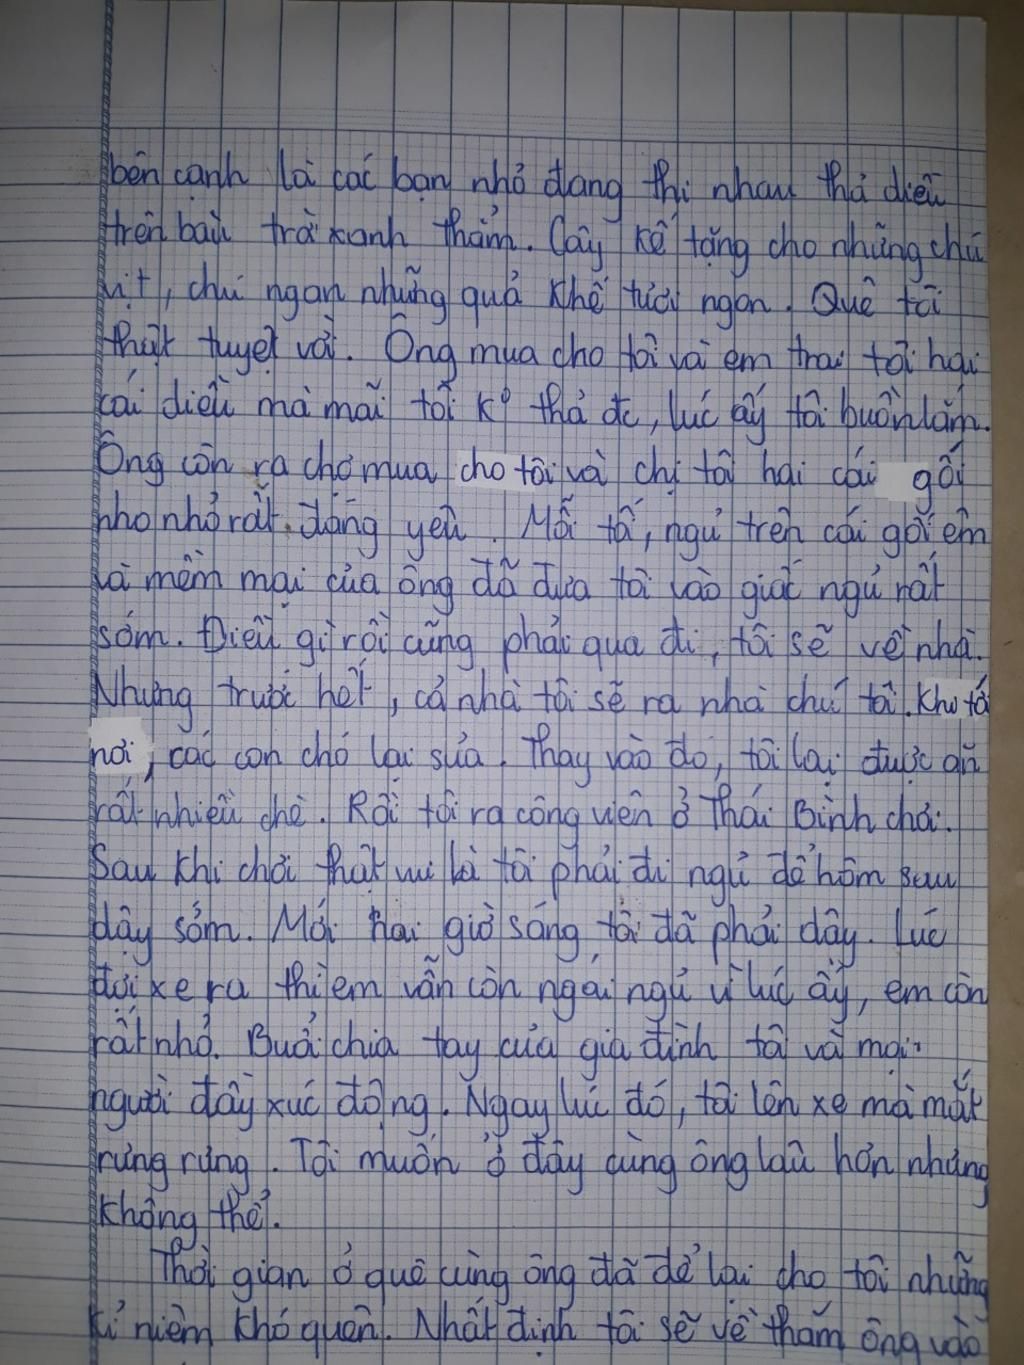 bên cạnh là các bạn nhỏ đang thi nhau thả diều
trên bầu trờ xanh thẳm. Cây kế tặng cho những chú
vịt, chú ngan những quả khế tươi ngon. Quê tôi
thật tuyệt vời. Ông mua cho tôi và em trai tôi hai
cái diều mà mãi tôi k° thả đc, lúc ấy tôi buồn lắm.
Ông còn ra chợ mua cho tôi và chị tôi hai cái gối
nho nhỏ rất đáng yêu. Mỗi tố, ngủ trên cái gối êm
và mềm mại của ông đã đưa tôi vào giấc ngủ rất
sớm. Điều gì rồi cũng phải qua đi, tôi sẽ về nhà.
Nhưng trước hết, cả nhà tôi sẽ ra nhà chú tôi. Khi tới
nơi, các con chó lại sủa. Thay vào đó, tôi lại được ăn
rất nhiều chè. Rồi tôi ra công viên ở Thái Bình chơi.
Sau khi chơi thật vui là tôi phải đi ngủ để hôm sau
dậy sớm. Mới hai giờ sáng tôi đã phải dậy. Lúc
đợi xe ra thì em vẫn còn ngái ngủ vì lúc ấy, em còn
rất nhỏ. Buổi chia tay của gia đình tôi và mọi
người đầy xúc động. Ngay lúc đó, tôi lên xe mà mắt
rưng rưng. Tôi muốn ở đây cùng ông lâu hơn nhưng
không thể.
Thời gian ở quê cùng ông đã để lại cho tôi những
kỉ niệm khó quên. Nhất định tôi sẽ về thăm ông vào